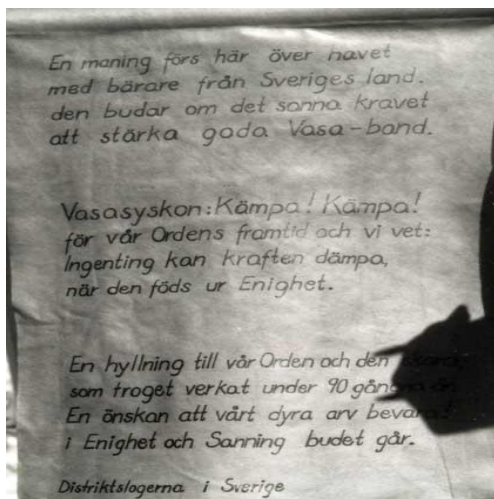 En maning förs här över havet
med bärare från Sveriges land.
den budar om det sanna kravet
att stärka goda Vasa-band.
Vasasyskon: Kämpa! Kämpa!
för vår Ordens framtid och vi vet:
Ingenting kan kraften dämpa,
när den föds ur Enighet.
En hyllning till vår Orden och den
som troget verkat under 90
En önskan att vårt dyra arv
i Enighet och Sanning budet går.
Distriktslogerna i Sverige